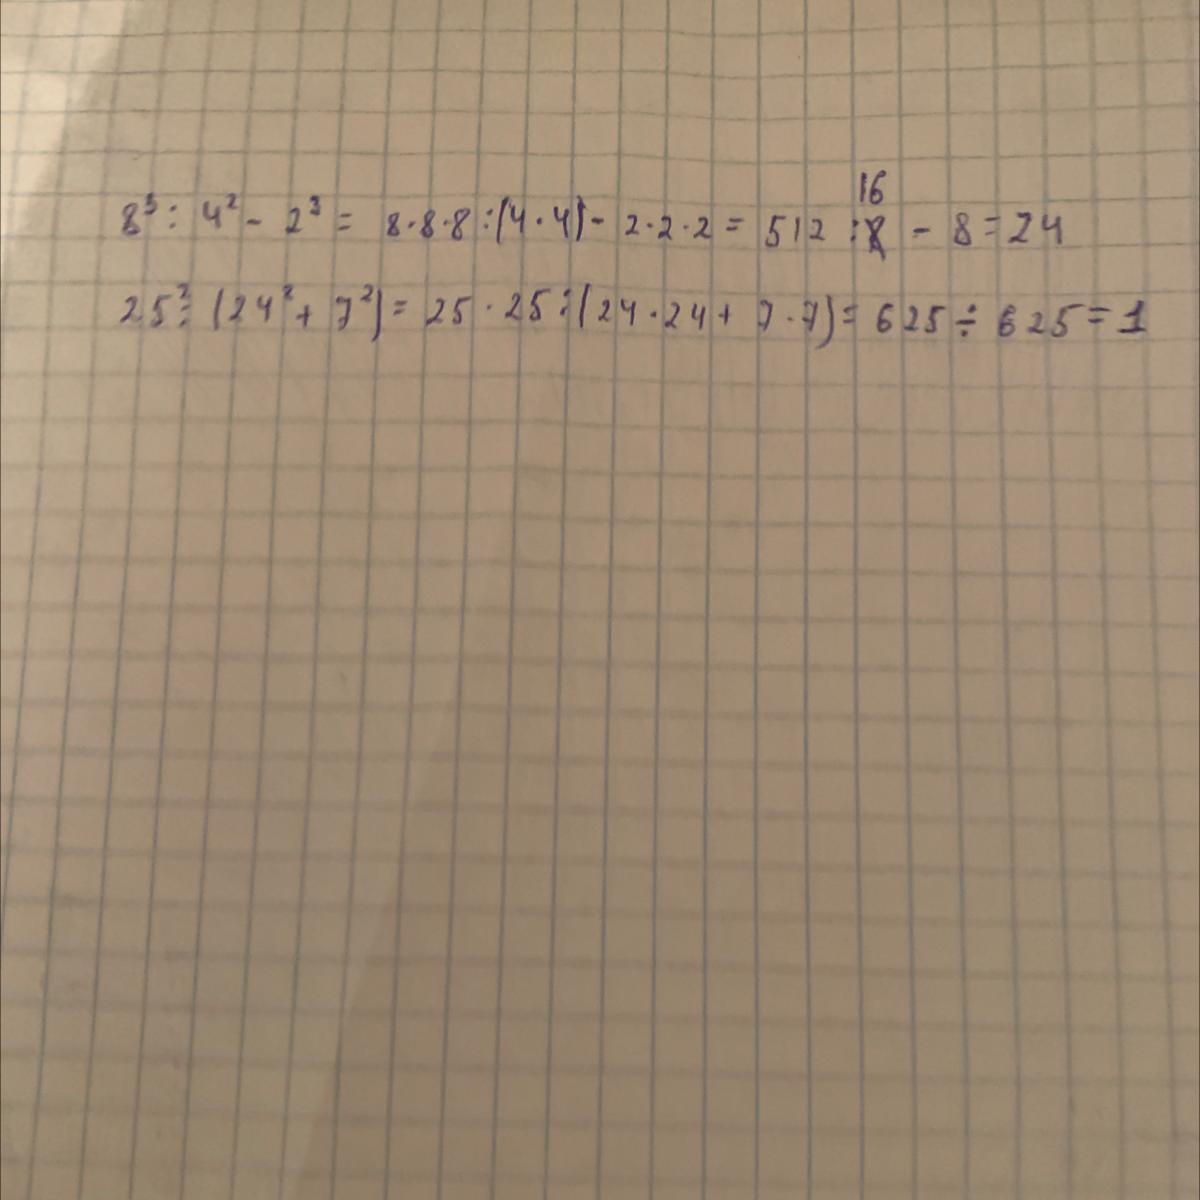 16
8³ : 4² - 2³ = 8·8·8 : (4·4) - 2·2·2 = 512 : 8 - 8 = 24
25² : (24² + 7²) = 25·25 : (24·24 + 7·7) = 625 ÷ 625 = 1